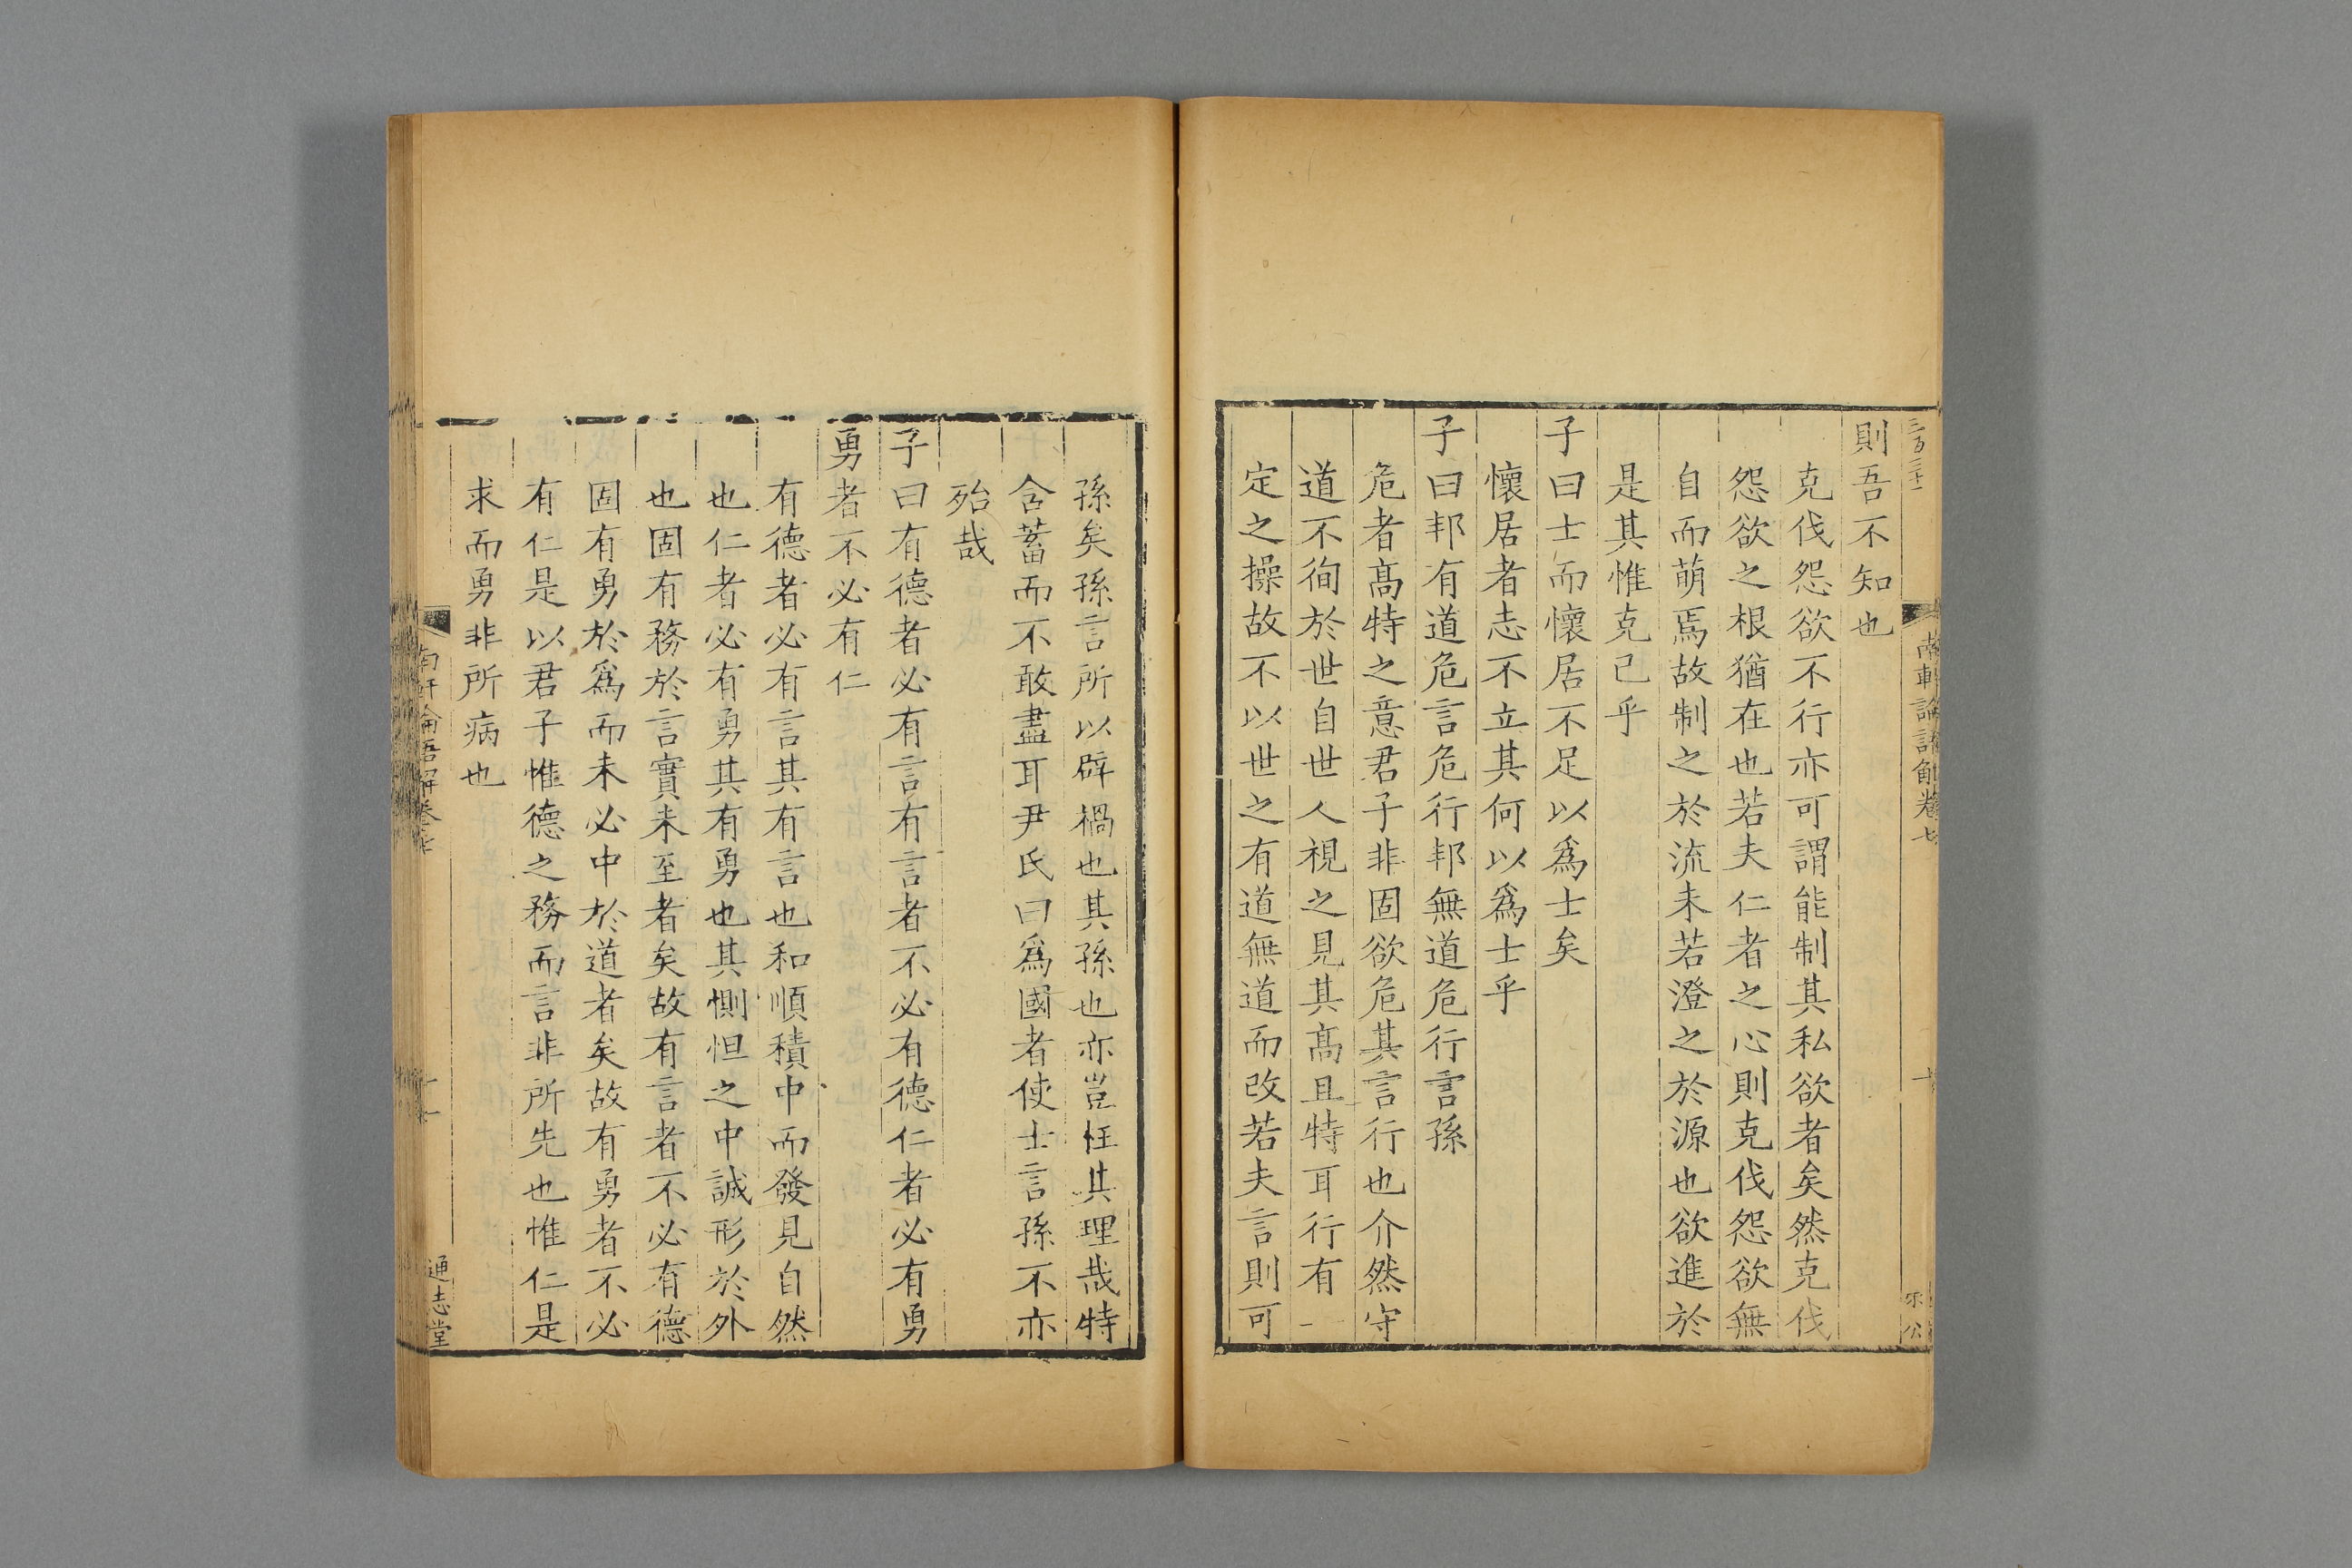 三百二十一
南軒論語解卷七
則吾不知也
克伐怨欲不行亦可謂能制其私欲者矣然克伐
怨欲之根猶在也若夫仁者之心則克伐怨欲無
自而萌焉故制之於流未若澄之於源也欲進於
是其惟克己乎
子曰士而懷居不足以爲士矣
懷居者志不立其何以爲士乎
子曰邦有道危言危行邦無道危行言孫
危者髙特之意君子非固欲危其言行也介然守
道不徇於世自世人視之見其髙且特耳行有一
定之操故不以世之有道無道而改若夫言則可
孫矣孫言所以辟禍也其孫也亦豈枉其理哉特
含蓄而不敢盡耳尹氏曰爲國者使士言孫不亦
殆哉
子曰有德者必有言有言者不必有德仁者必有勇
勇者不必有仁
有德者必有言其有言也和順積中而發見自然
也仁者必有勇其有勇也其惻怛之中誠形於外
也固有務於言實未至者矣故有言者不必有德
固有勇於爲而未必中於道者矣故有勇者不必
有仁是以君子惟德之務而言非所先也惟仁是
求而勇非所病也
南軒論語解卷七
十一
通志堂